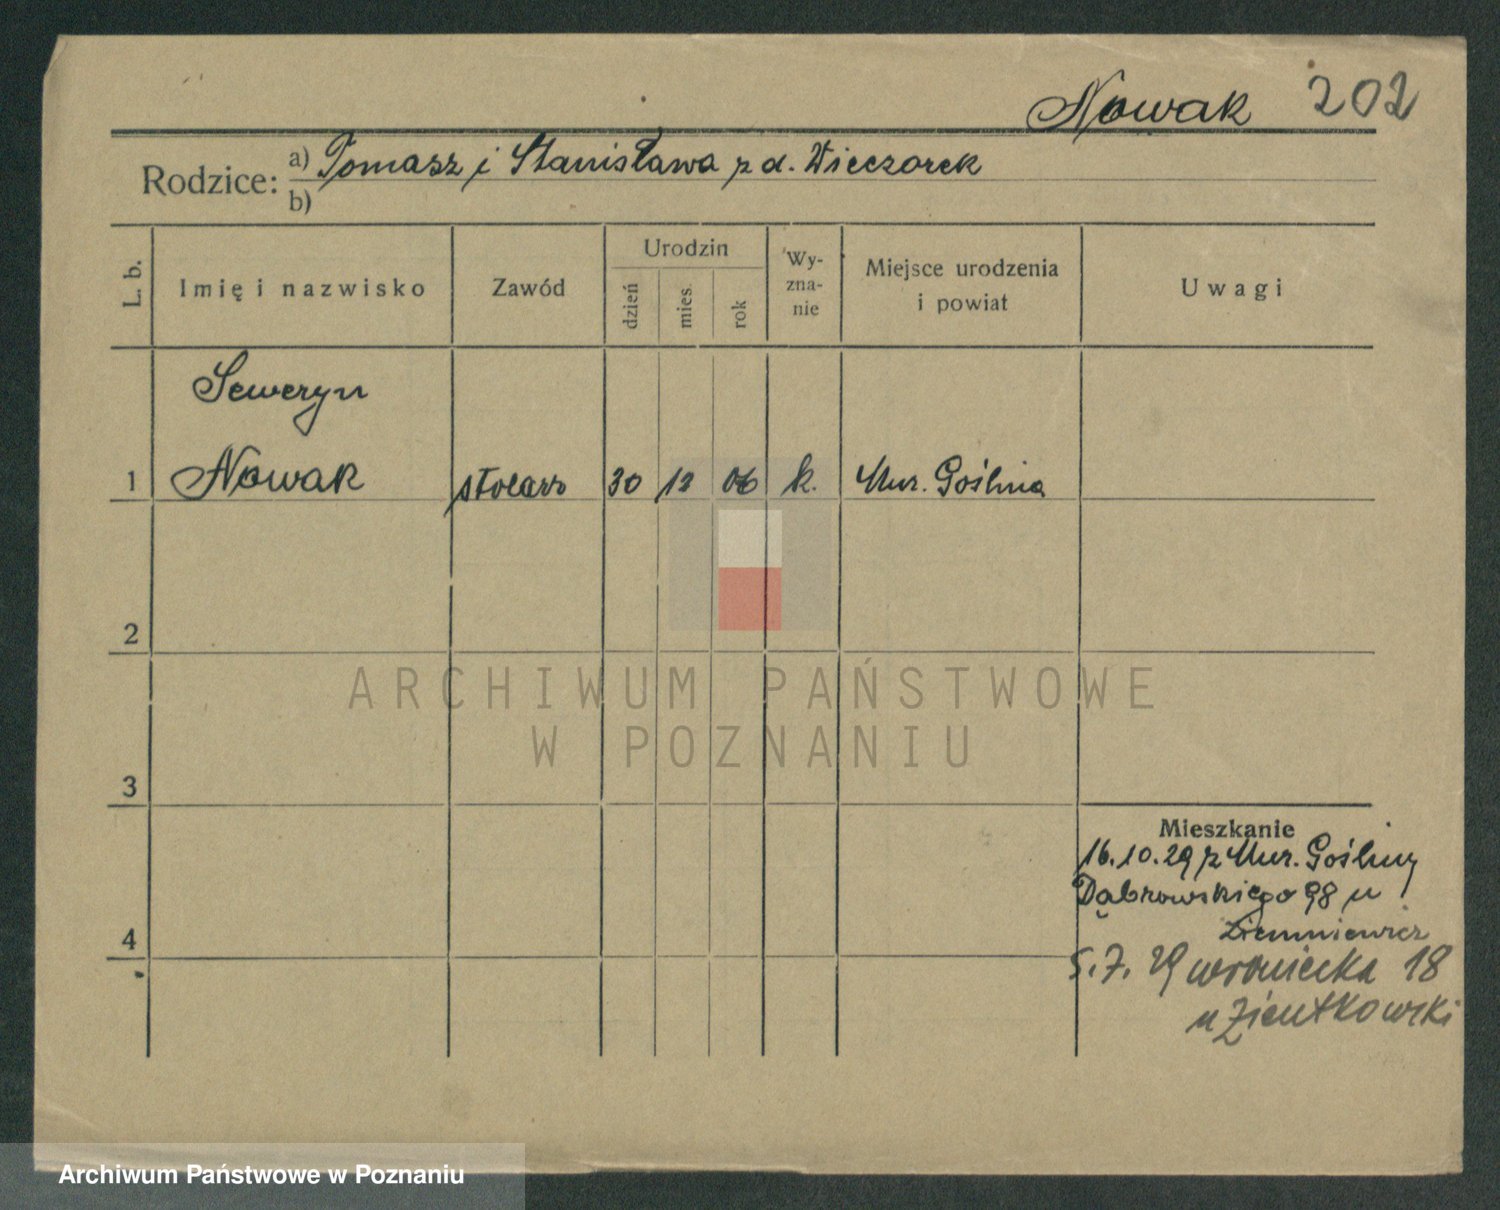 Nowak 202
Rodzice: a) Tomasz i Stanisława z d. Wieczorek
b)
L. b. Imię i nazwisko Zawód Urodzin dzień mies. rok Wyznanie Miejsce urodzenia i powiat Uwagi
Seweryn
1 Nowak stolarz 30 12 06 k. Mur. Goślina
2
ARCHIWUM PAŃSTWOWE
W POZNANIU
3
Mieszkanie
16.10.29 z Mur. Gośliny
Dąbrowskiego 98 u
Ziemniewicz
4
5.7.29 wroniecka 18
u Zientkowski
Archiwum Państwowe w Poznaniu